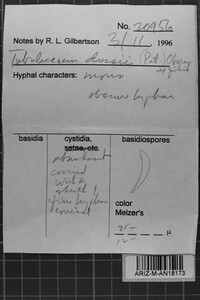 No. 20956
Notes by R. L. Gilbertson 3/11 1996
Tubulicium dussii (Pat.) Oberw.
Hyphal characters: mono
obscure hyphae
basidia
cystidia, setae, etc.
basidiospores
abundant
covered
with
sheath
hyphae
color
Melzer's
µ
ARIZ-M-AN18173